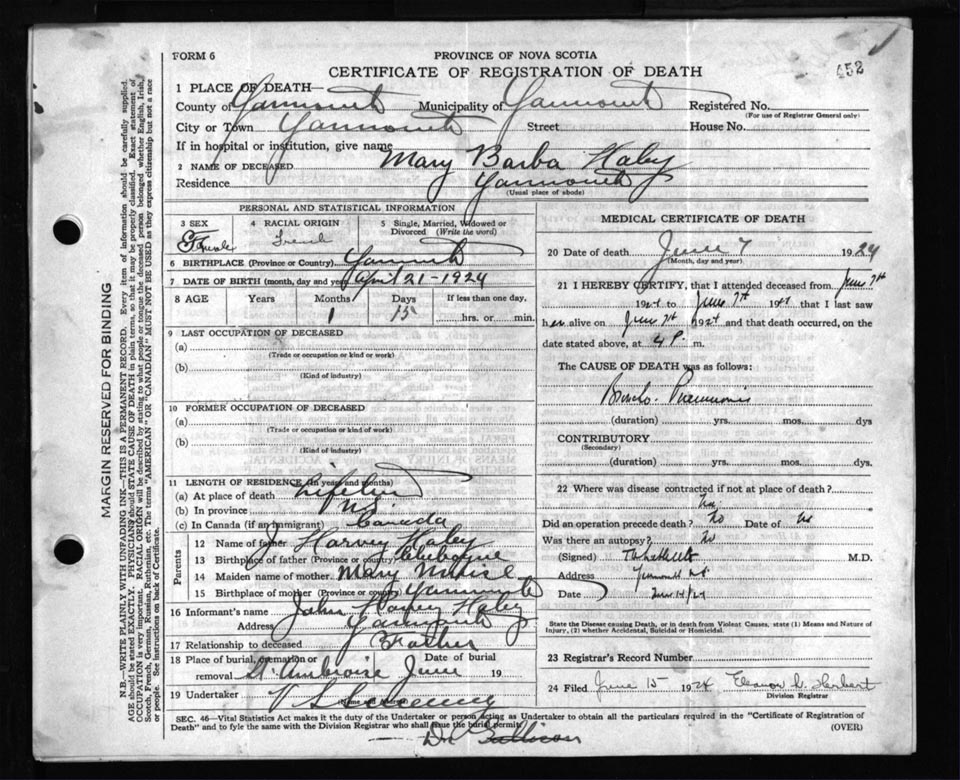 FORM 6
PROVINCE OF NOVA SCOTIA
CERTIFICATE OF REGISTRATION OF DEATH
452
1 PLACE OF DEATH—
County of Yarmouth Municipality of Yarmouth Registered No.
(For use of Registrar General only)
City or Town Yarmouth Street House No.
If in hospital or institution, give name
2 NAME OF DECEASED Mary Barba Haley
Residence Yarmouth
(Usual place of abode)
PERSONAL AND STATISTICAL INFORMATION
3 SEX 4 RACIAL ORIGIN 5 Single, Married, Widowed or Divorced (Write the word)
Female French
6 BIRTHPLACE (Province or Country) Yarmouth
7 DATE OF BIRTH (month, day and year) April 21-1924
8 AGE Years Months Days If less than one day,
1 15 hrs. or min.
9 LAST OCCUPATION OF DECEASED
(a)
(Trade or occupation or kind or work)
(b)
(Kind of industry)
10 FORMER OCCUPATION OF DECEASED
(a)
(Trade or occupation or kind of work)
(b)
(Kind of industry)
11 LENGTH OF RESIDENCE (In years and months)
(a) At place of death Lifetime
(b) In province N.S.
(c) In Canada (if an immigrant) Canada
Parents
12 Name of father J Harvey Haley
13 Birthplace of father (Province or country)
14 Maiden name of mother Mary
15 Birthplace of mother (Province or country) Yarmouth
16 Informant's name John Harvey Haley
Address Yarmouth
17 Relationship to deceased Father
18 Place of burial, cremation or removal St Ambroise June 19
Date of burial
19 Undertaker V S Sweeny
(Name and address)
MEDICAL CERTIFICATE OF DEATH
20 Date of death June 7 1924
(Month, day and year)
21 I HEREBY CERTIFY, that I attended deceased from June 7th
1924 to June 7th 1924 that I last saw
her alive on June 7th 1924 and that death occurred, on the
date stated above, at 4 P. m.
The CAUSE OF DEATH was as follows:
Broncho. Pneumonia
(duration) yrs. mos. dys
CONTRIBUTORY
(Secondary)
(duration) yrs. mos. dys.
22 Where was disease contracted if not at place of death?
Did an operation precede death? No Date of
Was there an autopsy? No
(Signed) M.D.
Address Yarmouth N.S.
Date June 14/24
State the Disease causing Death, or in death from Violent Causes, state (1) Means and Nature of Injury, (2) whether Accidental, Suicidal or Homicidal.
23 Registrar's Record Number
24 Filed June 15 1924 Eleanor Herbert
Division Registrar
SEC. 46—Vital Statistics Act makes it the duty of the Undertaker or person acting as Undertaker to obtain all the particulars required in the "Certificate of Registration of
Death" and to fyle the same with the Division Registrar who shall issue the burial permit.
(OVER)
MARGIN RESERVED FOR BINDING
N.B.—WRITE PLAINLY WITH UNFADING INK—THIS IS A PERMANENT RECORD. Every item of information should be carefully supplied.
AGE should be stated EXACTLY. PHYSICIANS should STATE CAUSE OF DEATH in plain terms, so that it may be properly classified. Exact statement of
OCCUPATION is very important. RACIAL ORIGIN will be described by stating to what people or tongue the deceased person belonged whether English, Irish,
Scotch, French, German, Russian, Ruthenian, etc. The terms "AMERICAN" OR "CANADIAN" MUST NOT BE USED as they express citizenship but not a race
or people. See instructions on back of Certificate.